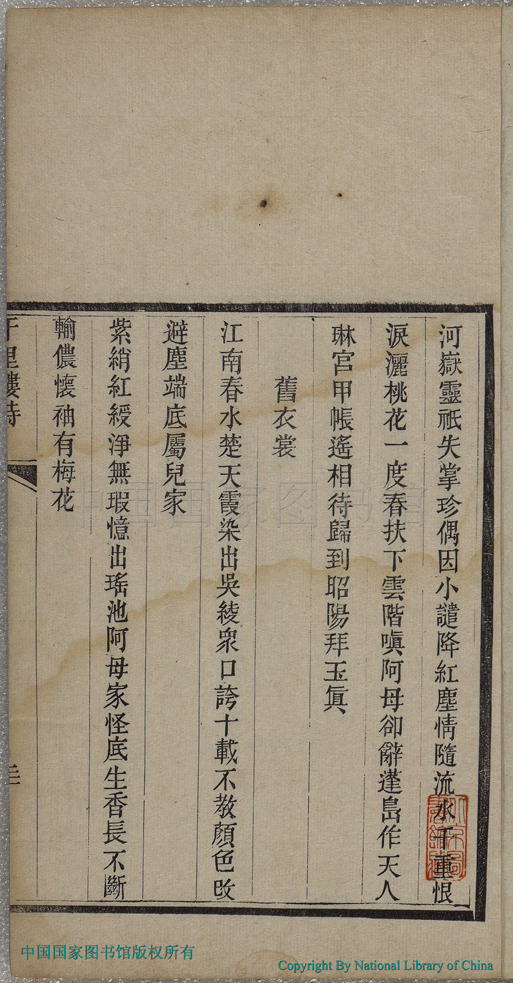 河嶽靈祇失掌珍偶因小譴降紅塵情隨流水千重恨
淚灑桃花一度春扶下雲階嗔阿母卻辭蓬島作天人
琳宮甲帳遙相待歸到昭陽拜玉眞
舊衣裳
江南春水楚天霞染出吳綾衆口誇十載不敎顏色改
避塵端底屬兒家
紫綃紅綬淨無瑕憶出瑤池阿母家怪底生香長不斷
輸儂懷袖有梅花
中国国家图书馆版权所有
Copyright By National Library of China